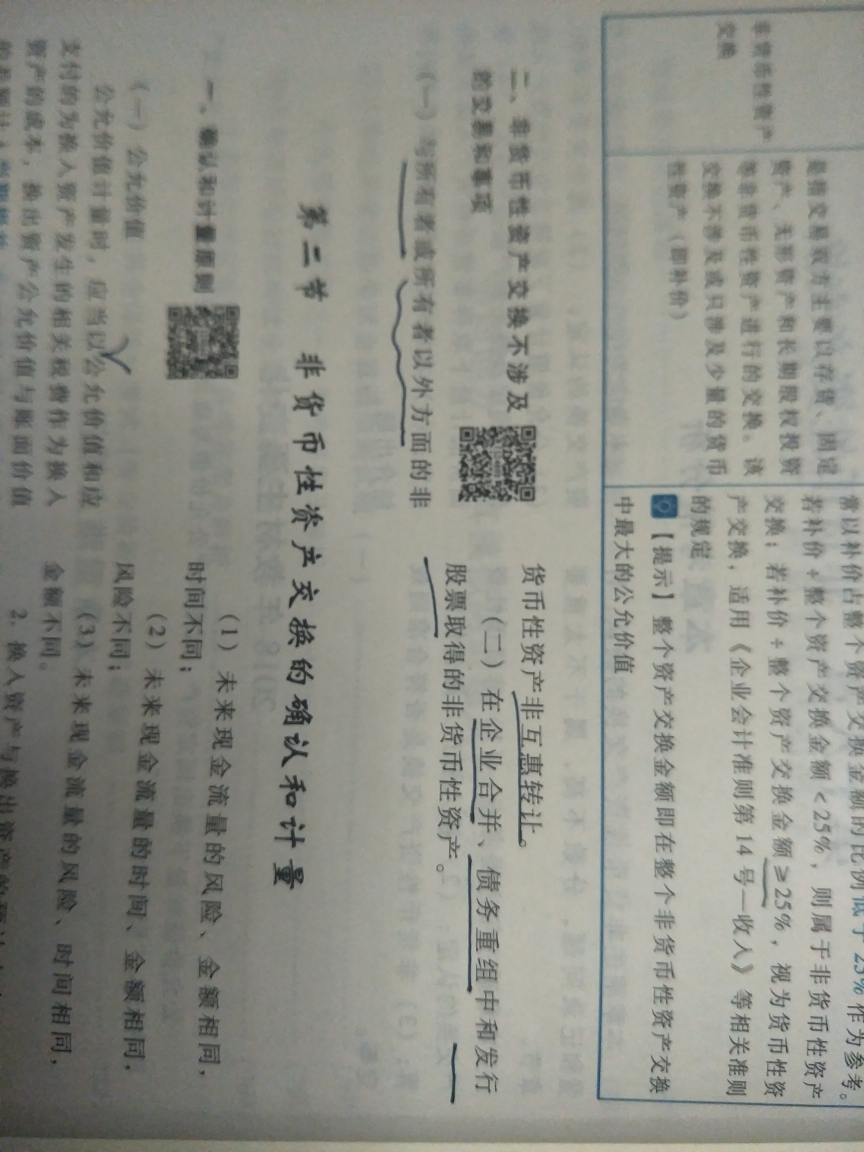 非货币性资产
交换
是指交易双方主要以存货、固定
资产、无形资产和长期股权投资
等非货币性资产进行的交换。该
交换不涉及或只涉及少量的货币
性资产（即补价）
常以补价占整个资产交换金额的比例低于25%作为参考。
若补价÷整个资产交换金额<25%，则属于非货币性资产
交换；若补价÷整个资产交换金额≥25%，视为货币性资
产交换，适用《企业会计准则第14号—收入》等相关准则
的规定
【提示】整个资产交换金额即在整个非货币性资产交换
中最大的公允价值
二、非货币性资产交换不涉及
的交易和事项
（一）与所有者或所有者以外方面的非
货币性资产非互惠转让。
（二）在企业合并、债务重组中和发行
股票取得的非货币性资产。
第二节 非货币性资产交换的确认和计量
一、确认和计量原则
（一）公允价值
公允价值计量时，应当以公允价值和应
支付的为换入资产发生的相关税费作为换入
资产的成本，换出资产公允价值与账面价值
（1）未来现金流量的风险、金额相同，
时间不同；
（2）未来现金流量的时间、金额相同，
风险不同；
（3）未来现金流量的风险、时间相同，
金额不同。
2. 换入资产与换出资产的